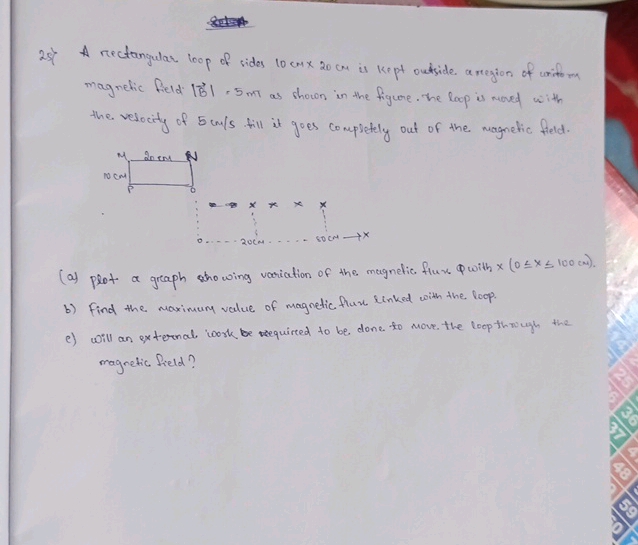 25) A rectangular loop of sides 10 cm x 20 cm is kept outside a region of uniform
magnetic field |B⃗| = 5mT as shown in the figure. The loop is moved with
the velocity of 5 cm/s till it goes completely out of the magnetic field.
M 20 cm N
10 cm
P O
x x x x x
0 ..... 20cm ..... 50 cm → x
(a) plot a graph showing variation of the magnetic flux φ with x (0 ≤ x ≤ 100 cm).
b) Find the maximum value of magnetic flux linked with the loop.
c) will an external work be required to be done to move the loop through the
magnetic field?
24
25
36
37
48
59